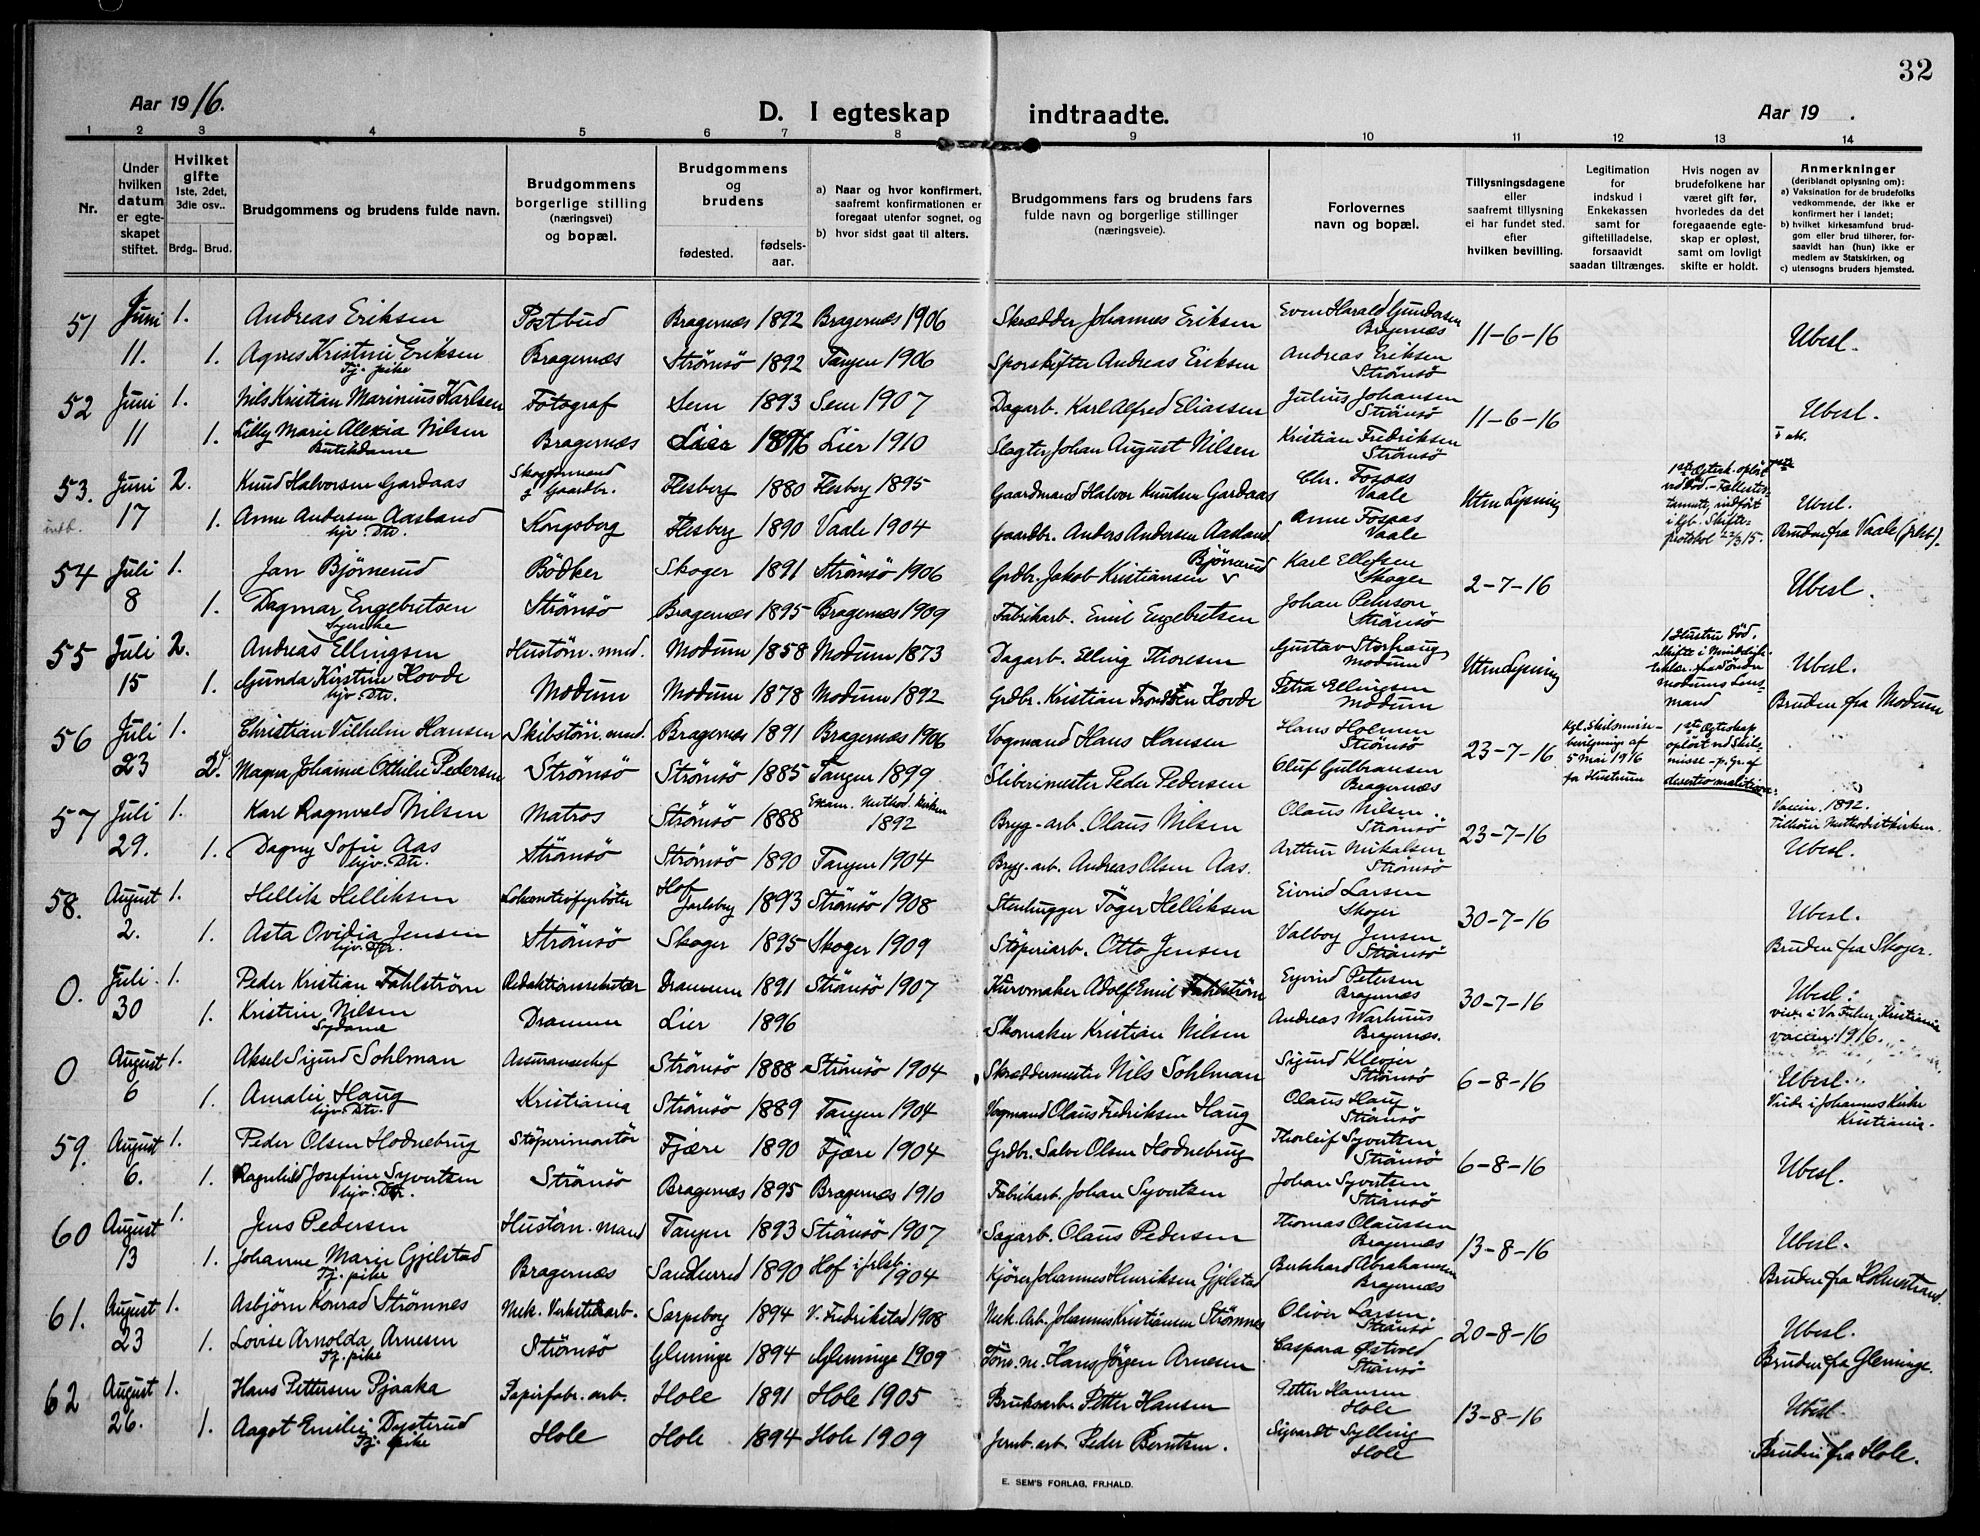 32
Aar 1916.
D. I egteskap indtraadte.
Aar 19 .
1 2 3 4 5 6 7 8 9 10 11 12 13 14
Nr.
Under hvilken datum er egteskapet stiftet.
Hvilket gifte 1ste, 2det, 3die osv..
Brdg.. Brud.
Brudgommens og brudens fulde navn.
Brudgommens borgerlige stilling (næringsvei) og bopæl.
Brudgommens og brudens
fødested. fødselsaar.
a) Naar og hvor konfirmert, saafremt konfirmationen er foregaat utenfor sognet, og
b) hvor sidst gaat til alters.
Brudgommens fars og brudens fars fulde navn og borgerlige stillinger (næringsveie).
Forlovernes navn og bopæl.
Tillysningsdagene eller saafremt tillysning ei har fundet sted. efter hvilken bevilling.
Legitimation for indskud i Enkekassen samt for giftetilladelse, forsaavidt saadan tiltrænges.
Hvis nogen av brudefolkene har været gift før, hvorledes da det foregaaende egteskap er opløst, samt om lovligt skifte er holdt.
Anmerkninger (deriblandt oplysning om):
a) Vaksination for de brudefolks vedkommende, der ikke er konfirmert her i landet;
b) hvilket kirkesamfund brudgom eller brud tilhører, forsaavidt han (hun) ikke er medlem av Statskirken, og
c) utensogns bruders hjemsted.
51 Juni 1. Andreas Eriksen Postbud Bragernæs 1892 Bragernæs 1906 Skrædder Johannes Eriksen Even Harald Gundersen Bragernæs 11-6-16 Ubesl.
11. 1. Agnes Kristine Eriksen Tj. pike Bragernæs Strömsö 1892 Tangen 1906 Sporskifter Andreas Eriksen Andreas Eriksen Strömsö
52 Juni 1. Nils Kristian Marinius Karlsen Fotograf Sem 1893 Sem 1907 Dagarb. Karl Alfred Eliassen Julius Johansen Strömsö 11-6-16 Ubesl.
11 1. Lilly Marie Alexia Nilsen Butikdame Bragernæs Lier 1896 Lier 1910 Slagter Johan August Nilsen Kristian Fredriksen Strömsö
53. Juni 2. Knud Halvorsen Gardaas Skogformand g Gaardbr. Flesberg 1880 Flesberg 1895 Gaardmand Halvor Knudsen Gardaas Chr. Fospas Vaale Uten Lysning Ubesl.
17 1. Anne Andersen Aasland hjv. Dtr. Kongsberg Flesberg 1890 Vaale 1904 Gaardbr. Anders Andersen Aasland Anne Fospas Vaale Bruden fra Vaale
54 Juli 1. Jan Björnerud Bödker Skoger 1891 Strömsö 1906 Grdbr. Jakob Kristiansen Björnerud Karl Ellefsen Skoger 2-7-16 Ubesl.
8 1. Dagmar Engebretsen Syerske Strömsö Bragernæs 1895 Bragernæs 1909 Fabrikarb. Emil Engebretsen Johan Peterson Strömsö
55 Juli 2. Andreas Ellingsen Hustöm. mnd. Modum 1858 Modum 1873 Dagarb. Elling Thoresen Gustav Storhaug Modum Uten Lysning 1 Hustru död. Ubesl.
15 1. Gunda Kirstine Hovde hjv. Dtr. Modum Modum 1878 Modum 1892 Grdbr. Kristian Trondsen Hovde Petra Ellingsen Modum Bruden fra Modum
56 Juli 1. Christian Vilhelm Hansen Skibstöm. mnd. Bragernæs 1891 Bragernæs 1906 Vognmand Hans Hansen Hans Holmen Strömsö 23-7-16 Kgl. Skilsmissebevilgning af 5 Mai 1916 for Hustruen 1ste Ægteskap oplöst ved Skilsmisse - p. Gr. af desertio malitiosa.
23 2. Magna Johanne Othilie Pedersen Strömsö Strömsö 1885 Tangen 1899 Sliberimester Peder Pedersen Oluf Gulbransen Bragernæs
57 Juli 1. Karl Ragnvald Nilsen Matros Strömsö 1888 Exam. Method. kirken 1892 Bryg-arb. Olaus Nilsen Olaus Nilsen Strömsö 23-7-16 Vaccin. 1892. Tilhörer Methodistkirken.
29. 1. Dagny Sofie Aas hjv. Dtr. Strömsö Strömsö 1890 Tangen 1904 Bryg.-arb. Andreas Olsen Aas. Arthur Mikalsen Strömsö Ubesl.
58. August 1. Hellik Helliksen Lokomotivfyrböter Hof Jarlsberg 1893 Strömsö 1908 Stenhugger Töger Helliksen Eivind Larsen Skoger 30-7-16 Ubesl.
2. 1. Asta Ovidia Jensen hjv. Dtr. Strömsö Skoger 1895 Skoger 1909 Stöperiarb. Otto Jensen Valborg Jensen Strömsö Bruden fra Skoger.
0. Juli. 1. Peder Kristian Fahlström Redaktionssekretær Drammen 1891 Strömsö 1907 Kurvmaker Adolf Emil Fahlström Eyvind Petersen Bragernæs 30-7-16 Ubesl.
30 1. Kristine Nilsen Sydame Drammen Lier 1896 Skomaker Kristian Nilsen Andreas Warhuus Bragernæs. viet i Vor Frelser, Kristiania vaccin. 1916.
0 August 1. Aksel Sigurd Sohlman Assuransechef Strömsö 1888 Strömsö 1904 Skræddermester Nils Sohlman Sigurd Klevjer Strömsö 6-8-16 Ubesl.
6 1. Amalie Haug hjv. Dtr. Kristiania Strömsö 1889 Tangen 1904 Vognmand Olaus Fredriksen Haug Olaus Haug Strömsö Viede i Johannes Kirke Kristiania.
59. August 1. Peder Olsen Hodnebrug Stöperimontör Fjære 1890 Fjære 1904 Grdbr. Salve Olsen Hodnebrug Thorleif Syvertsen Strömsö 6-8-16 Ubesl.
6. 1. Ragnhild Josefine Syvertsen hjv. Dtr. Strömsö Bragernæs 1895 Bragernæs 1910 Fabrikarb. Johan Syvertsen Johan Syvertsen Strömsö
60 August 1. Jens Pedersen Hustöm. mand Tangen 1893 Strömsö 1907 Sagarb. Olaus Pedersen Thomas Olaussen Bragernæs 13-8-16 Ubesl.
13 1. Johanne Marie Gjelstad Tj. pike Bragernæs Sandherred 1890 Hof i Jrlsb. 1904 Kjörer Johannes Henriksen Gjelstad Burkhard Abrahamsen Bragernæs Bruden fra Holmestrand.
61. August 1. Asbjörn Konrad Strömnes Mek. Verkstedarb. Sarpsborg 1894 V. Fredrikstad 1908 Mek. Arb. Johannes Kristiansen Strömnes Oliver Larsen. Strömsö 20-8-16 Ubesl.
23 1. Lovise Arnolda Arnesen Tj. pike Strömsö Glemminge 1894 Glemminge 1909 Töm. m. Hans Jörgen Arnesen Caspara Østved Strömsö Bruden fra Glemminge.
62 August 1. Hans Pettersen Pjaaka Papirfabr. arb. Hole 1891 Hole 1905 Bruksarb. Petter Hansen Petter Hansen Hole 13-8-16 Ubesl.
26. 1. Aagot Emilie Dystrud Tj. pike Hole Hole 1894 Hole 1909 Jernb. arb. Peder Berntsen. Sigvardt Sylling Hole Bruden fra Hole.
E. SEM'S FORLAG, FR.HALD.